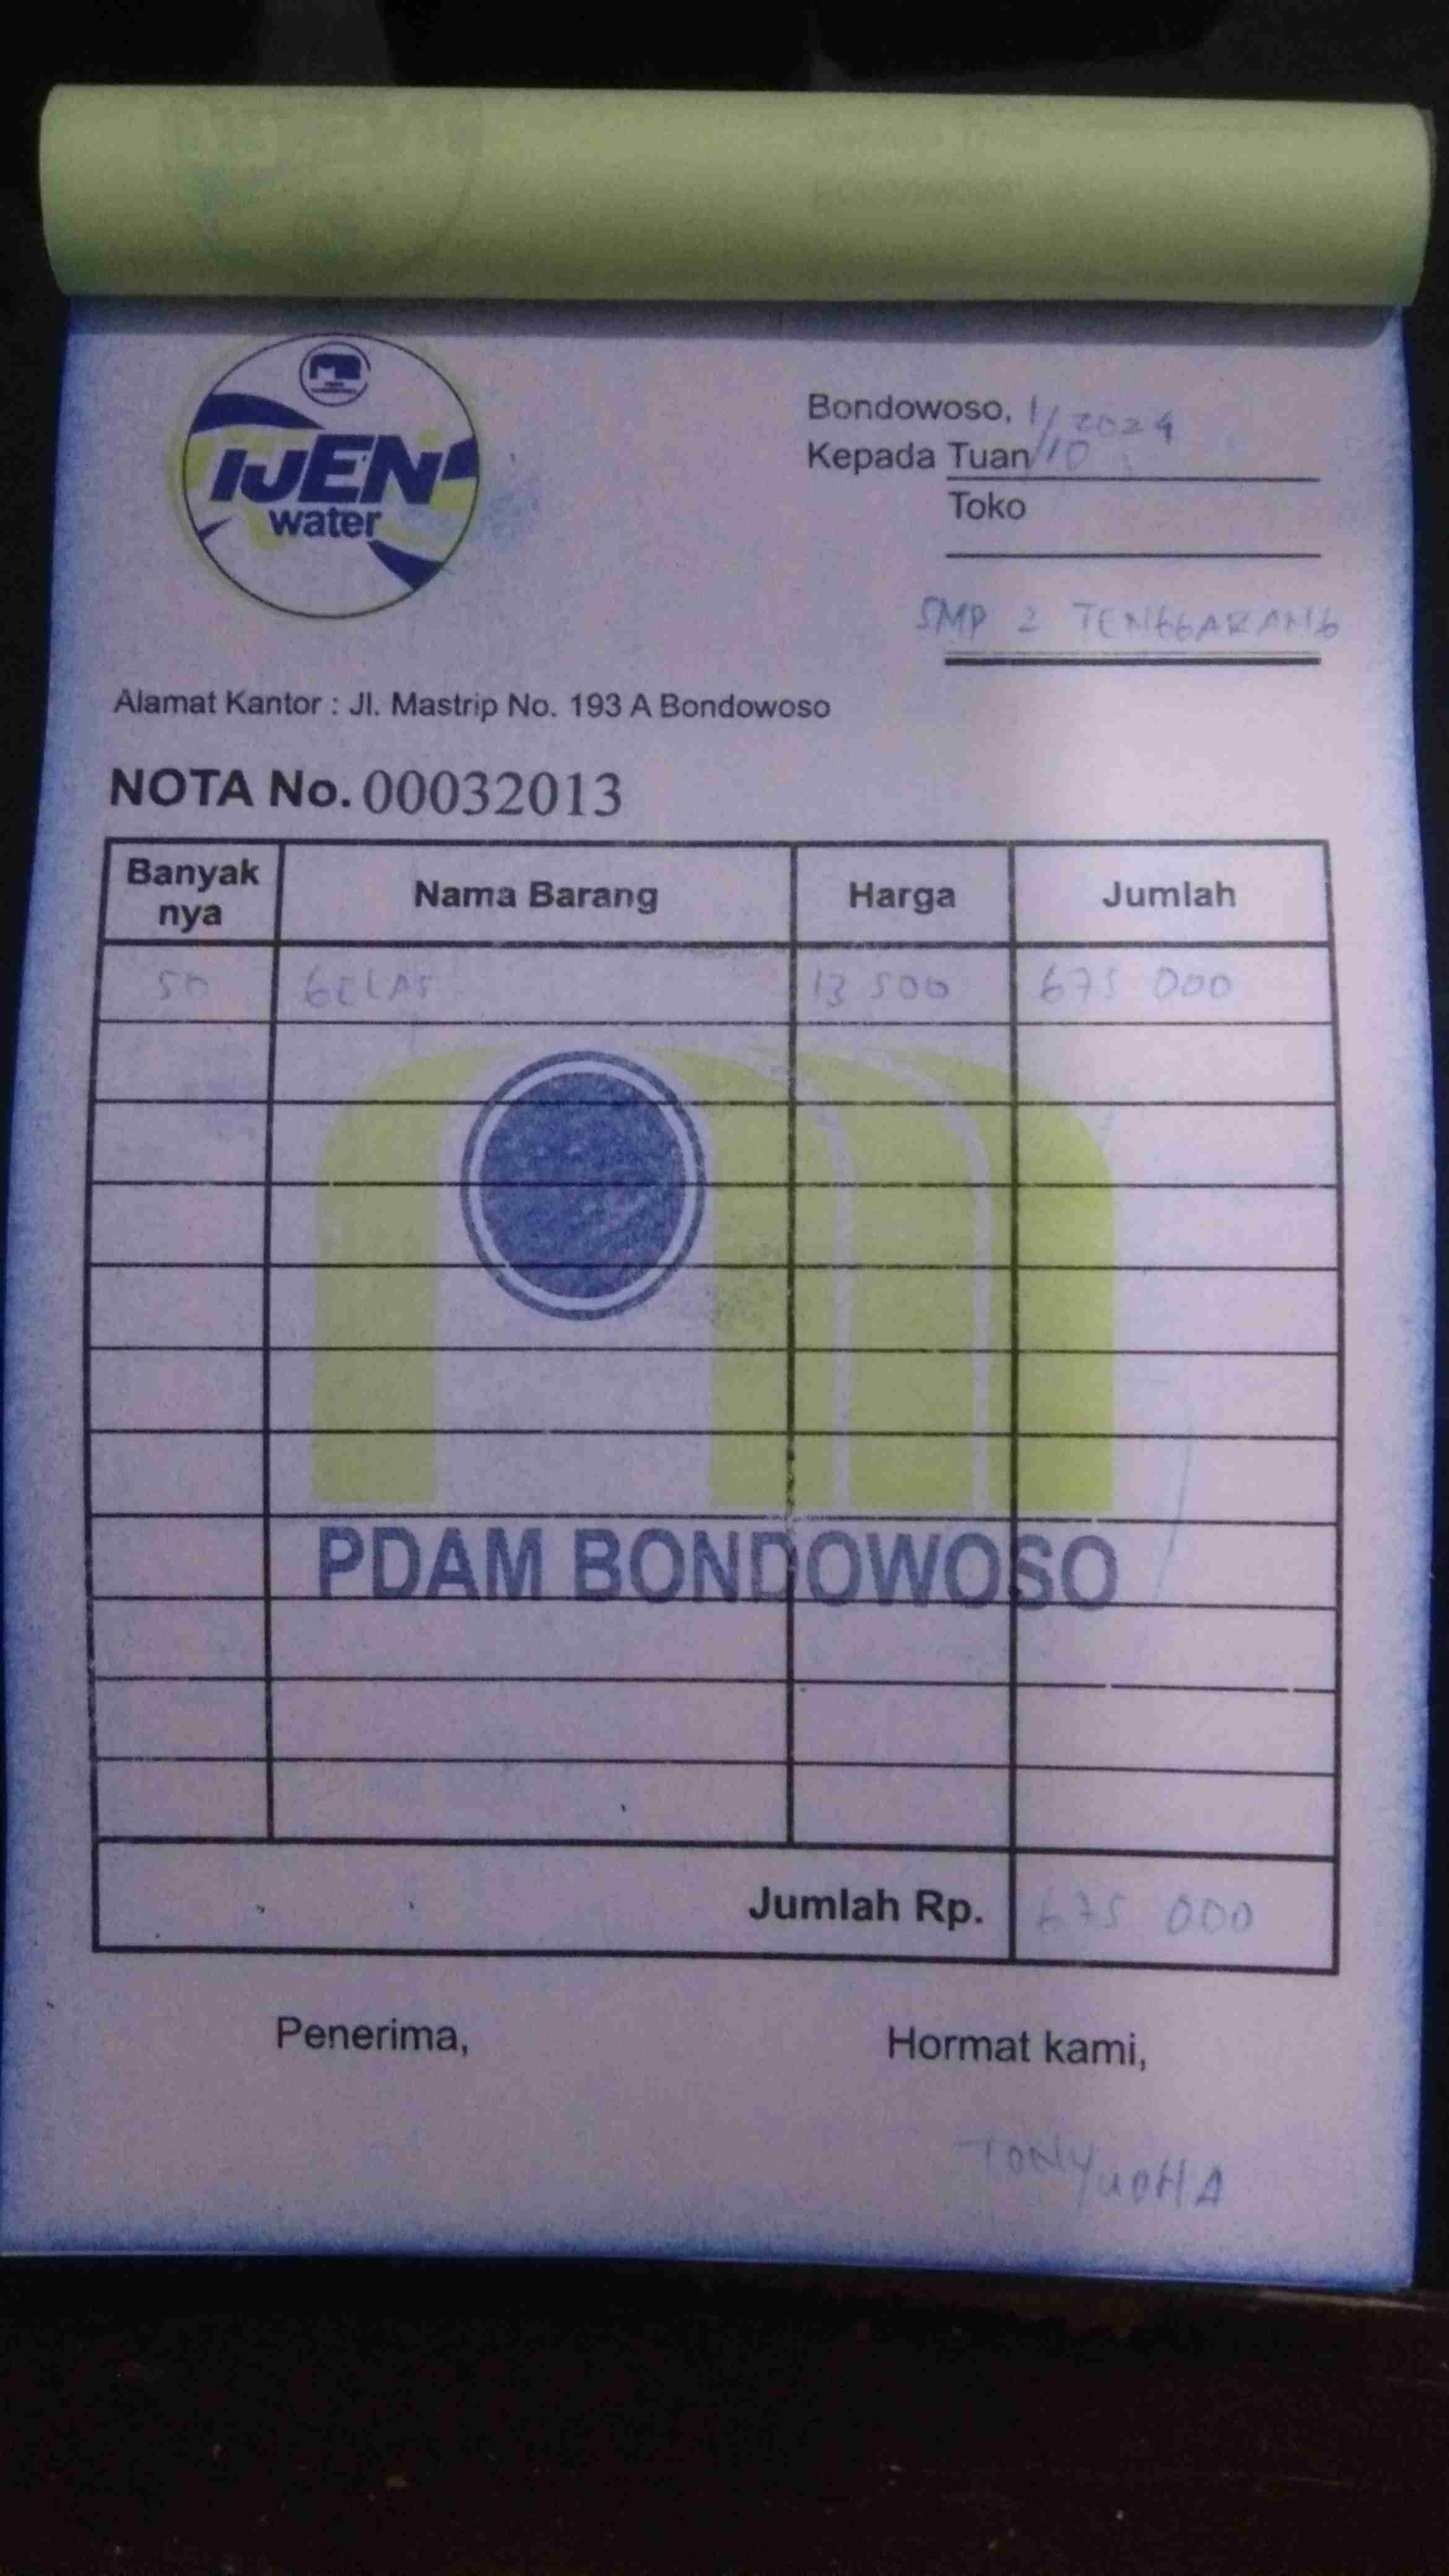 IJEN
water
Bondowoso, 1/10 2024
Kepada Tuan
Toko
SMP 2 TENGGARANG
Alamat Kantor : Jl. Mastrip No. 193 A Bondowoso
NOTA No. 00032013
Banyak nya Nama Barang Harga Jumlah
50 GELAS 13 500 675 000
PDAM BONDOWOSO
Jumlah Rp. 675 000
Penerima, Hormat kami,
TONY